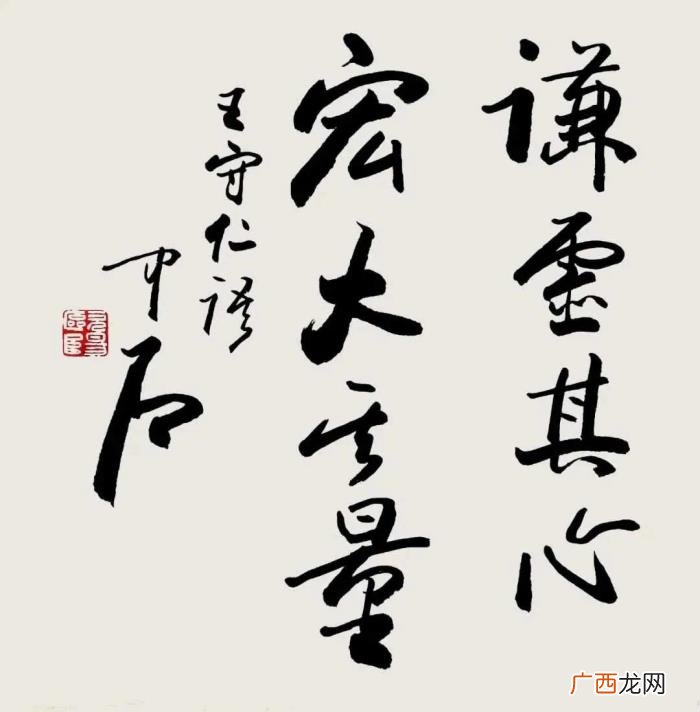 谦虚其心
宏大其量
王守仁语
中石
广西龙网